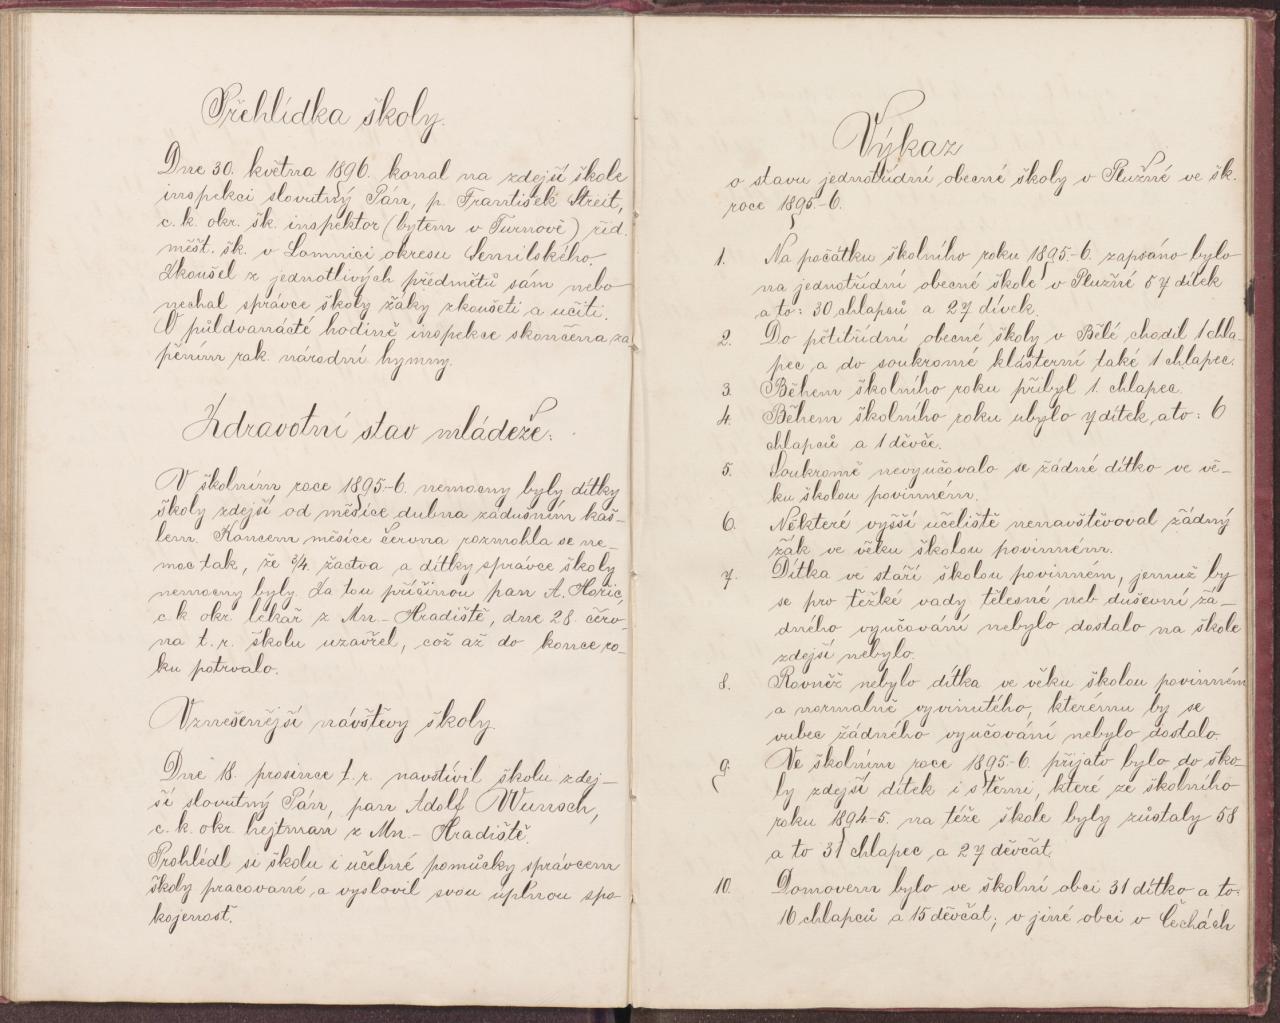 Přehlídka školy.
Dne 30. května 1896. konal na zdejší škole
inspekci slovutný Pán, p. František Streit,
c. k. okr. šk. inspektor (bytem v Turnově) říd.
měšt. šk. v Lomnici okresu Semilského.
Zkoušel z jednotlivých předmětů sám nebo
nechal správce školy žáky zkoušeti a učiti.
O půldvanácté hodině inspekce skončena za
pěním rak. národní hymny.
Zdravotní stav mládeže.
V školním roce 1895-6. nemocny byly dítky
školy zdejší od měsíce dubna zádušním kaš-
lem. Koncem měsíce června rozmohla se ne-
moc tak, že 3/4. žactva a dítky správce školy
nemocny byly. Za tou příčinou pan A. Hořic,
c. k. okr. lékař z Mn.- Hradiště, dne 28. červ-
na t. r. školu uzavřel, což až do konce ro-
ku potrvalo.
Vznešenější návštěvy školy.
Dne 18. prosince t. r. navštívil školu zdej-
ší slovutný Pán, pan Adolf Wunsch,
c. k. okr. hejtman z Mn.- Hradiště.
Prohlédl si školu i učebné pomůcky správcem
školy pracované a vyslovil svou úplnou spo-
kojenost.
Výkaz
o stavu jednotřídní obecné školy v Plužné ve šk.
roce 1895-6.
1. Na počátku školního roku 1895-6. zapsáno bylo
na jednotřídní obecné škole v Plužné 57 dítek
a to: 30 chlapců a 27 dívek.
2. Do pětitřídní obecné školy v Bělé chodil 1 chla-
pec a do soukromé klášterní také 1 chlapec.
3. Během školního roku přibyl 1. chlapec.
4. Během školního roku ubylo 7 dítek, a to: 6
chlapců a 1 děvče.
5. Soukromě nevyučovalo se žádné dítko ve vě-
ku školou povinném.
6. Některé vyšší učeliště nenavštěvoval žádný
žák ve věku školou povinném.
7. Dítka ve stáří školou povinném, jemuž by
se pro těžké vady tělesné neb duševní žá-
dného vyučování nebylo dostalo na škole
zdejší nebylo.
8. Rovněž nebylo dítka ve věku školou povinném
a normalně vyvinutého, kterému by se
vubec žádného vyučování nebylo dostalo.
9. Ve školním roce 1895-6. přijato bylo do ško-
ly zdejší dítek i s těmi, které ze školního
roku 1894-5. na téže škole byly zůstaly 58
a to 31 chlapec a 27 děvčat.
10. Domovem bylo ve školní obci 31 dítko a to:
16 chlapců a 15 děvčat; v jiné obci v Čechách